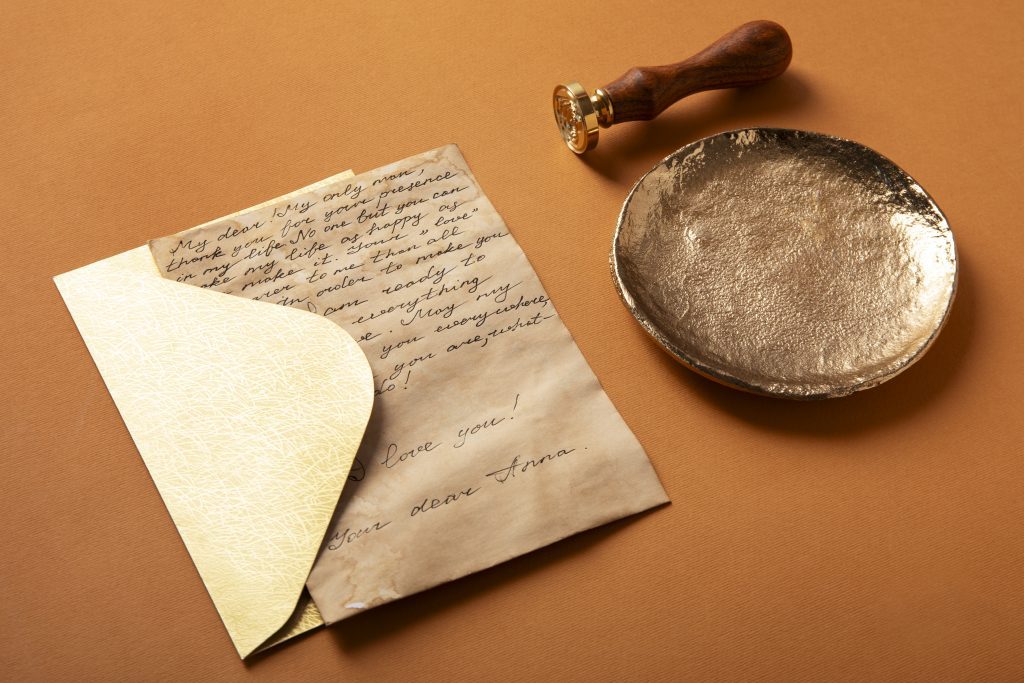 My dear! My only man,
thank you for your presence
in my life. No one but you can
make my life as happy as
make it. Your "love"
to me than all
in order to make you
am ready to
everything
. May my
you everywhere,
you are, what-
do!
I love you!
Your dear Anna.